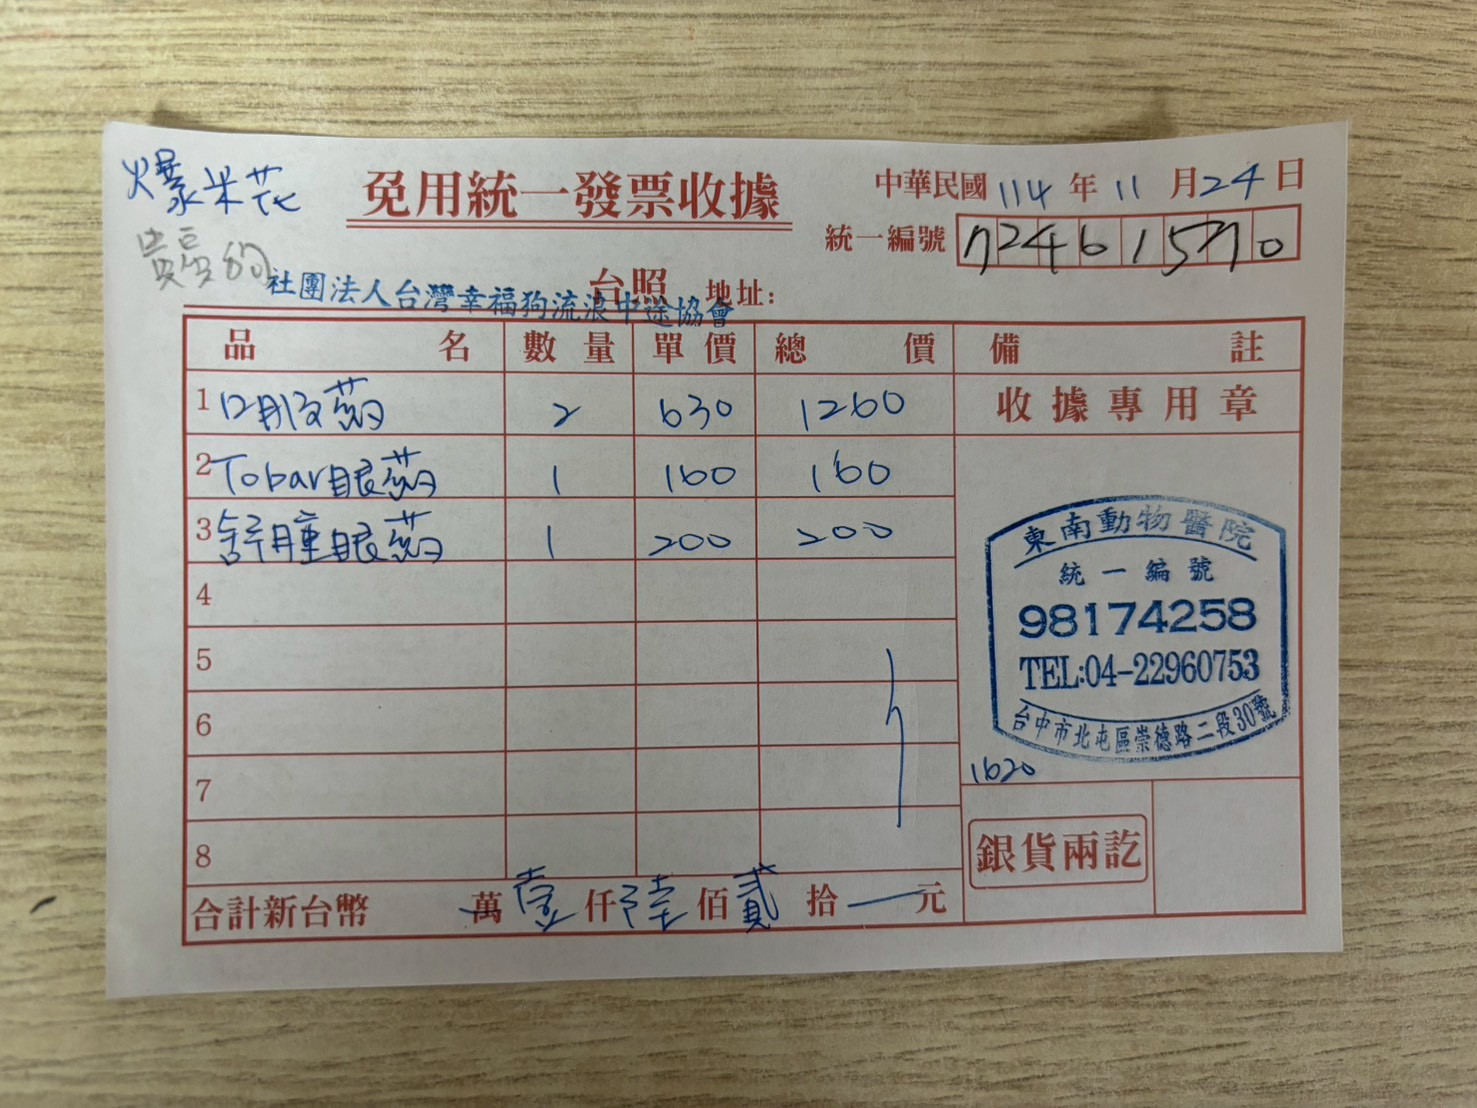 爆米花
貴賓狗
免用統一發票收據
中華民國 114 年 11 月 24 日
統一編號 72461570
社團法人台灣幸福狗流浪中途協會
台照 地址:
品名 數量 單價 總價 備註
1 口服葯 2 630 1260
2 Tobar眼葯 1 160 160
3 舒腫眼葯 1 200 200
4
5
6
7
8
收據專用章
東南動物醫院
統一編號
98174258
TEL:04-22960753
台中市北屯區崇德路二段30號
1620
銀貨兩訖
合計新台幣 萬壹仟陸佰貳拾一元